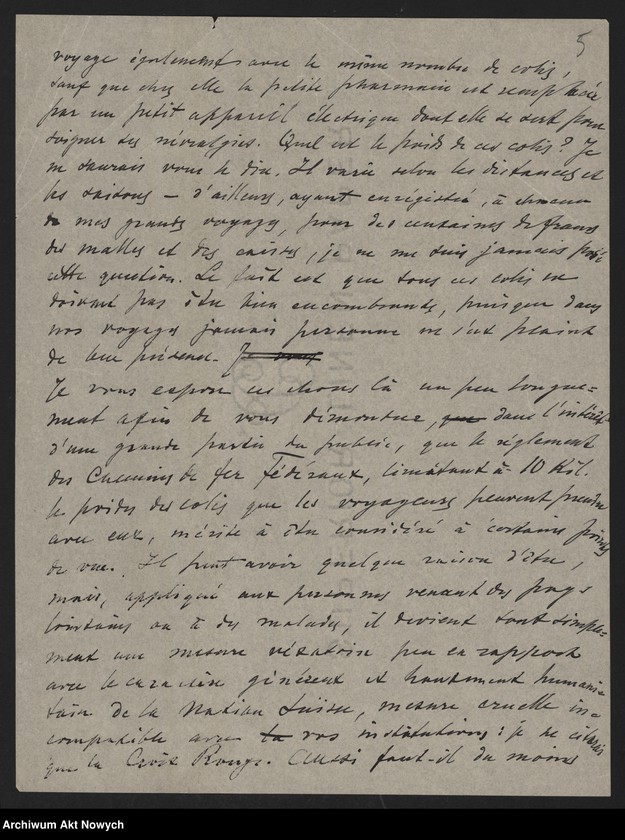 5
voyage également avec le même nombre de colis,
sauf que chez elle la petite pharmacie est remplacée
par un petit appareil électrique dont elle se sert pour
soigner ses névralgies. Quel est le poids de ces colis? Je
ne saurais vous le dire. Il varie selon les distances et
les saisons — d'ailleurs, ayant enregistré, à chacun
de mes grands voyages, pour des centaines de francs
des malles et des caisses, je ne me suis jamais posé
cette question. Le fait est que tous ces colis ne
doivent pas être bien encombrants, puisque dans
nos voyages jamais personne ne s'est plaint
de leur présence. Je vous
Je vous expose ces choses là un peu longue=
ment afin de vous démontrer, que dans l'intérêt
d'une grande partie du public, que le réglement
des Chemins de fer Fédéraux, limitant à 10 Kil.
le poids des colis que les voyageurs peuvent prendre
avec eux, mérite à être considéré à certains points
de vue. Il peut avoir quelque raison d'être,
mais, appliqué aux personnes venant des pays
lointains ou à des malades, il devient tout simple=
ment une mesure vexatoire peu en rapport
avec le caractère généreux et hautement humani=
taire de la Nation Suisse, mesure cruelle in=
compatible avec la vos institutions: je ne citerais
que la Croix Rouge. Aussi faut-il du moins
Archiwum Akt Nowych